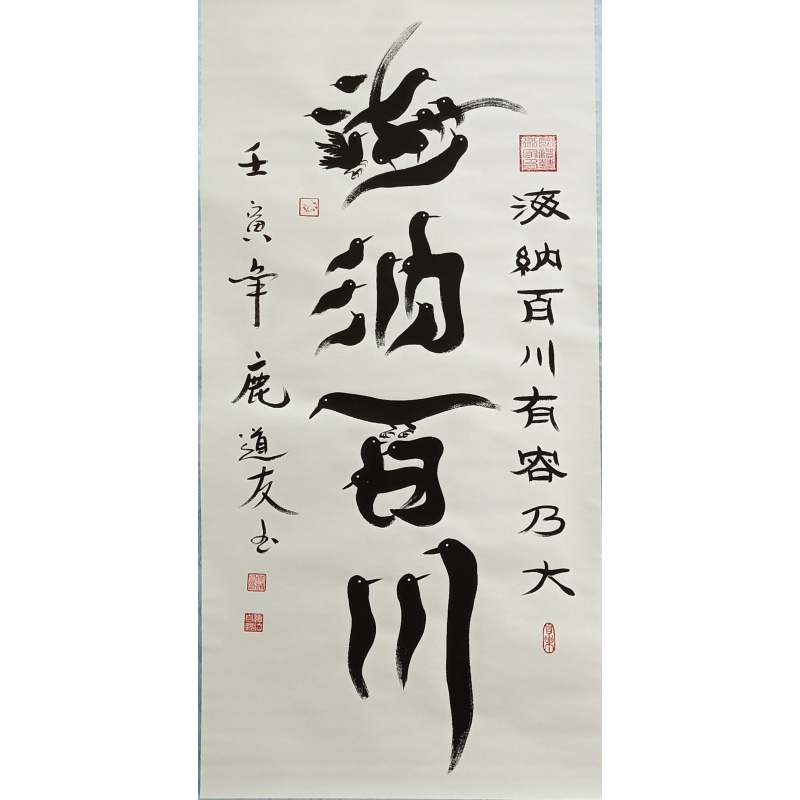 海纳百川有容乃大
海纳百川
壬寅年鹿道友书